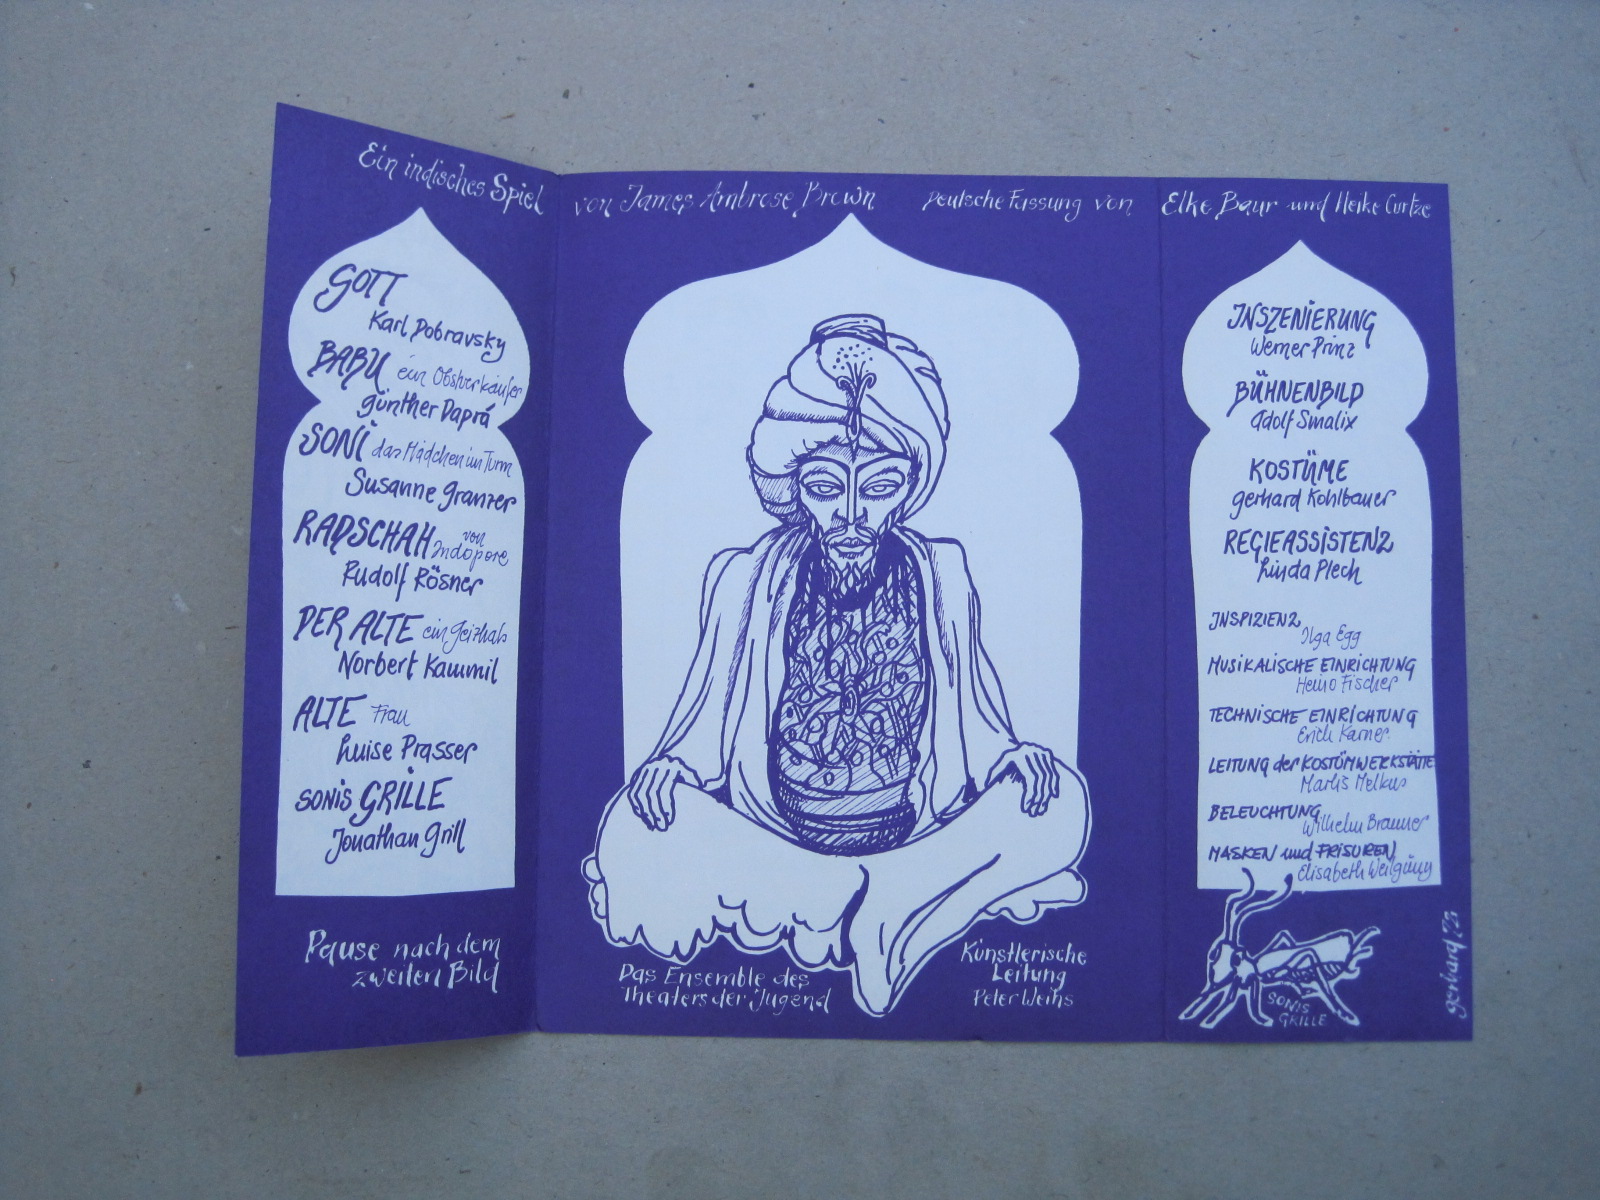 Ein indisches Spiel von James Ambrose Brown Deutsche Fassung von Elke Baur und Heike Curtze
GOTT
Karl Dobravsky
BABU ein Obstverkäufer
Günther Daprá
SONI das Mädchen im Turm
Susanne Granzer
RADSCHAH von Indopore
Rudolf Rösner
DER ALTE ein Geizhals
Norbert Kammil
ALTE Frau
Luise Prasser
SONIS GRILLE
Jonathan Grill
Pause nach dem
zweiten Bild
Das Ensemble des
Theaters der Jugend
Künstlerische
Leitung
Peter Weihs
INSZENIERUNG
Werner Prinz
BÜHNENBILD
Adolf Smalix
KOSTÜME
Gerhard Kohlbauer
REGIEASSISTENZ
Linda Plech
INSPIZIENZ
Ilga Egg
MUSIKALISCHE EINRICHTUNG
Heino Fischer
TECHNISCHE EINRICHTUNG
Erich Karner
LEITUNG der KOSTÜMWERKSTÄTTE
Marlis Melkus
BELEUCHTUNG
Wilhelm Branner
MASKEN und FRISUREN
Elisabeth Weilguny
SONIS
GRILLE